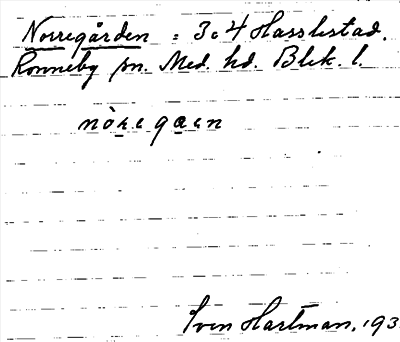 Norregården : 3 o 4 Hasslestad.
Ronneby sn. Med. hd. Blek. l.
Sven Hartman. 193